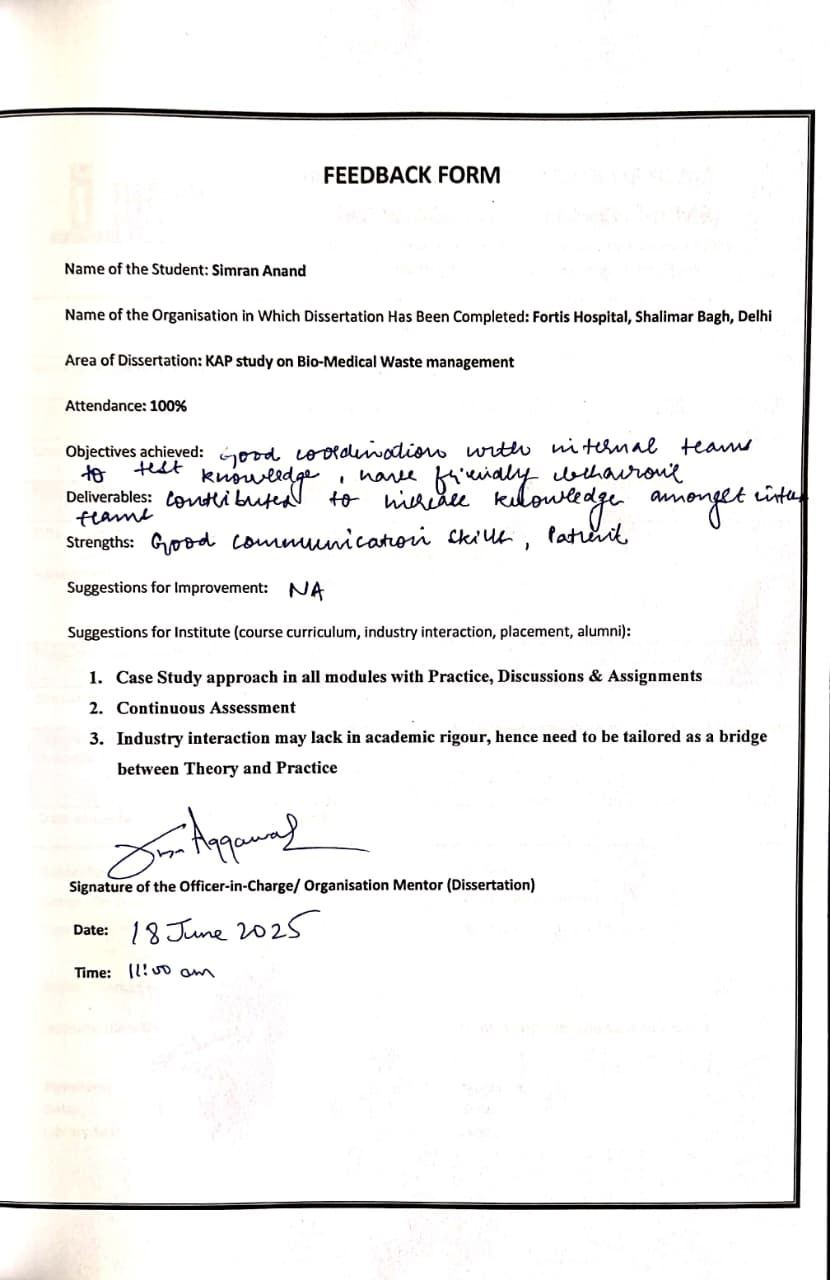 FEEDBACK FORM
Name of the Student: Simran Anand
Name of the Organisation in Which Dissertation Has Been Completed: Fortis Hospital, Shalimar Bagh, Delhi
Area of Dissertation: KAP study on Bio-Medical Waste management
Attendance: 100%
Objectives achieved: Good coordination with internal teams
to test knowledge, have friendly behaviour
Deliverables: Contributed to increase knowledge amongst
teams
Strengths: Good communication skills, Patient
Suggestions for Improvement: NA
Suggestions for Institute (course curriculum, industry interaction, placement, alumni):
1. Case Study approach in all modules with Practice, Discussions & Assignments
2. Continuous Assessment
3. Industry interaction may lack in academic rigour, hence need to be tailored as a bridge
between Theory and Practice
Aggarwal
Signature of the Officer-in-Charge/ Organisation Mentor (Dissertation)
Date: 18 June 2025
Time: 11:00 am